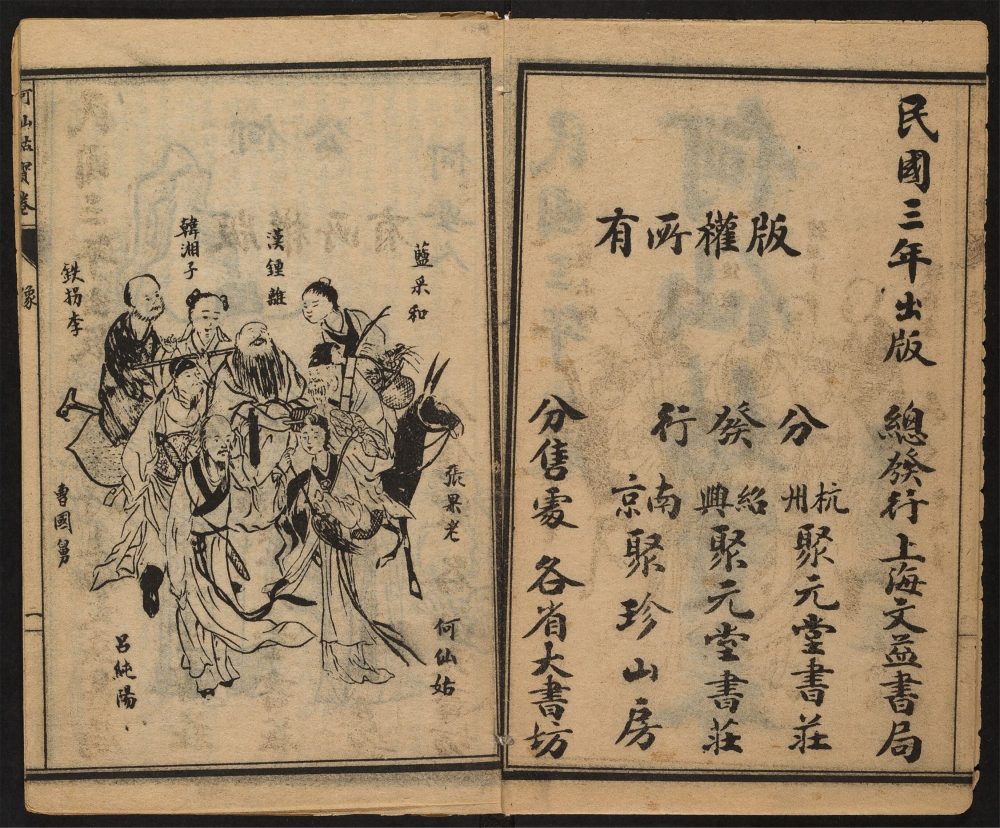 民國三年出版 總發行上海文益書局
版權所有
分發行
杭州聚元堂書莊
紹興聚元堂書莊
南京聚珍山房
分售處 各省大書坊
藍采和
漢鍾離
韓湘子
鉄拐李
張果老
曹國舅
何仙姑
呂純陽
何仙姑寳卷
像
一